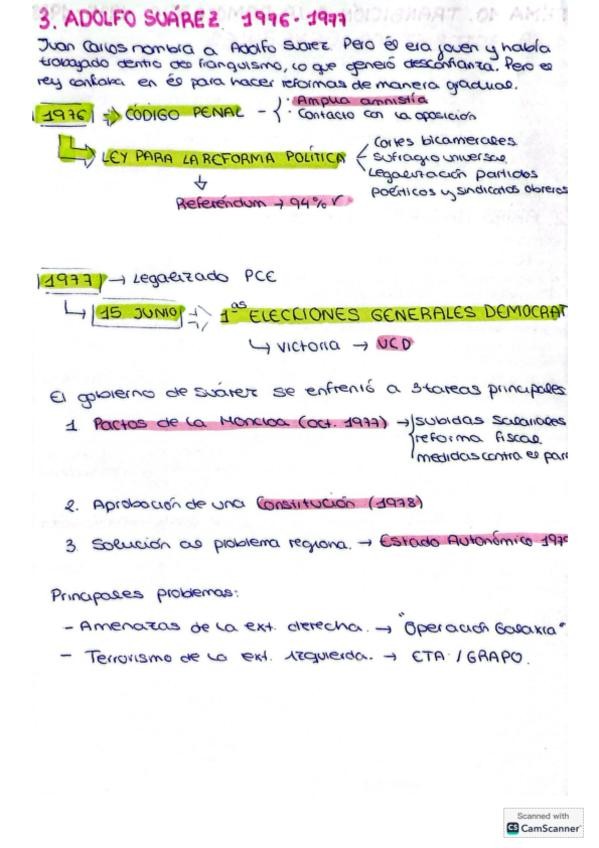 3. ADOLFO SUÁREZ. 1976 - 1977
Juan Carlos nombra a Adolfo Suárez. Pero él era joven y había
trabajado dentro del franquismo, lo que generó desconfianza. Pero el
rey confiaba en él para hacer reformas de manera gradual.
1976 → CÓDIGO PENAL - { · Amplia amnistía
· Contacto con la oposición
LEY PARA LA REFORMA POLÍTICA
Cortes bicamerales
Sufragio universal
Legalización partidos
políticos y sindicatos obreros
Referéndum → 94% ✓
1977 → Legalizado PCE
15 JUNIO → 1as ELECCIONES GENERALES DEMOCRAT
↳ Victoria → UCD
El gobierno de Suárez se enfrentó a 3 tareas principales
1 Pactos de la Moncloa (oct. 1977) → subidas salariales
reforma fiscal
medidas contra el par
2. Aprobación de una Constitución (1978)
3. Solución al problema regiona. → Estado Autonómico 197
Principales problemas:
- Amenazas de la ext. derecha. → "Operación Galaxia"
- Terrorismo de la ext. izquierda. → ETA / GRAPO.
Scanned with
CS CamScanner